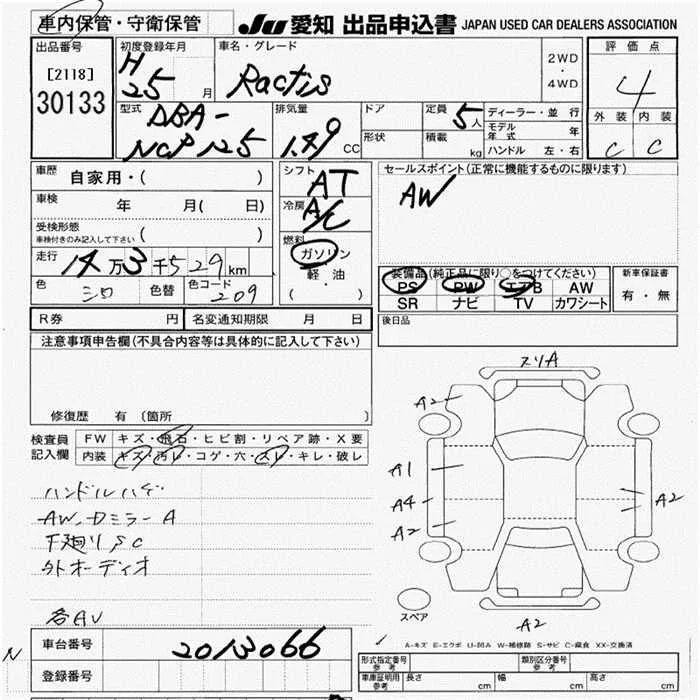 車内保管・守衛保管
JU 愛知 出品申込書 JAPAN USED CAR DEALERS ASSOCIATION
出品番号
[2118]
30133
初度登録年月
H
25 月
車名・グレード
Ractis
2WD
・
4WD
評価点
4
外装 内装
C C
型式
DBA-
NCP125
排気量
1.49 CC
ドア
形状
定員
5人
積載
kg
ディーラー・並行
モデル年式 年
ハンドル 左・右
車歴
自家用・( )
車検
年 月( 日)
受検形態
車検付きのみ記入して下さい ( )
走行
14万3千529km
色
色替
色コード
209
シフト
AT
冷房
A/C
燃料
ガソリン
・
軽油
( )
セールスポイント(正常に機能するものに限ります)
AW
装備品(純正品に限り○をつけてください)
PS PW エアB AW
SR ナビ TV カワシート
新車保証書
有・無
後日品
R券 円
名変通知期限 月 日
注意事項申告欄(不具合内容等は具体的に記入して下さい)
修復歴 有 (箇所 )
検査員
記入欄
FW キズ・飛石・ヒビ割・リペア跡・X要
内装 キズ・汚レ・コゲ・穴・スレ・キレ・破レ
ハンドルハゲ
AW、Dミラー A
下廻りSC
外オーディオ
各AU
スリA
A2
A1
A4
A2
A2
A2
スペア
A-キズ E-エクボ U-凹み W-補修跡 S-サビ C-腐食 XX-交換済
N
車台番号
2013066
登録番号
形式指定番号
参考
類別区分番号
参考
車庫証明用
参考
長さ cm
幅 cm
高さ cm